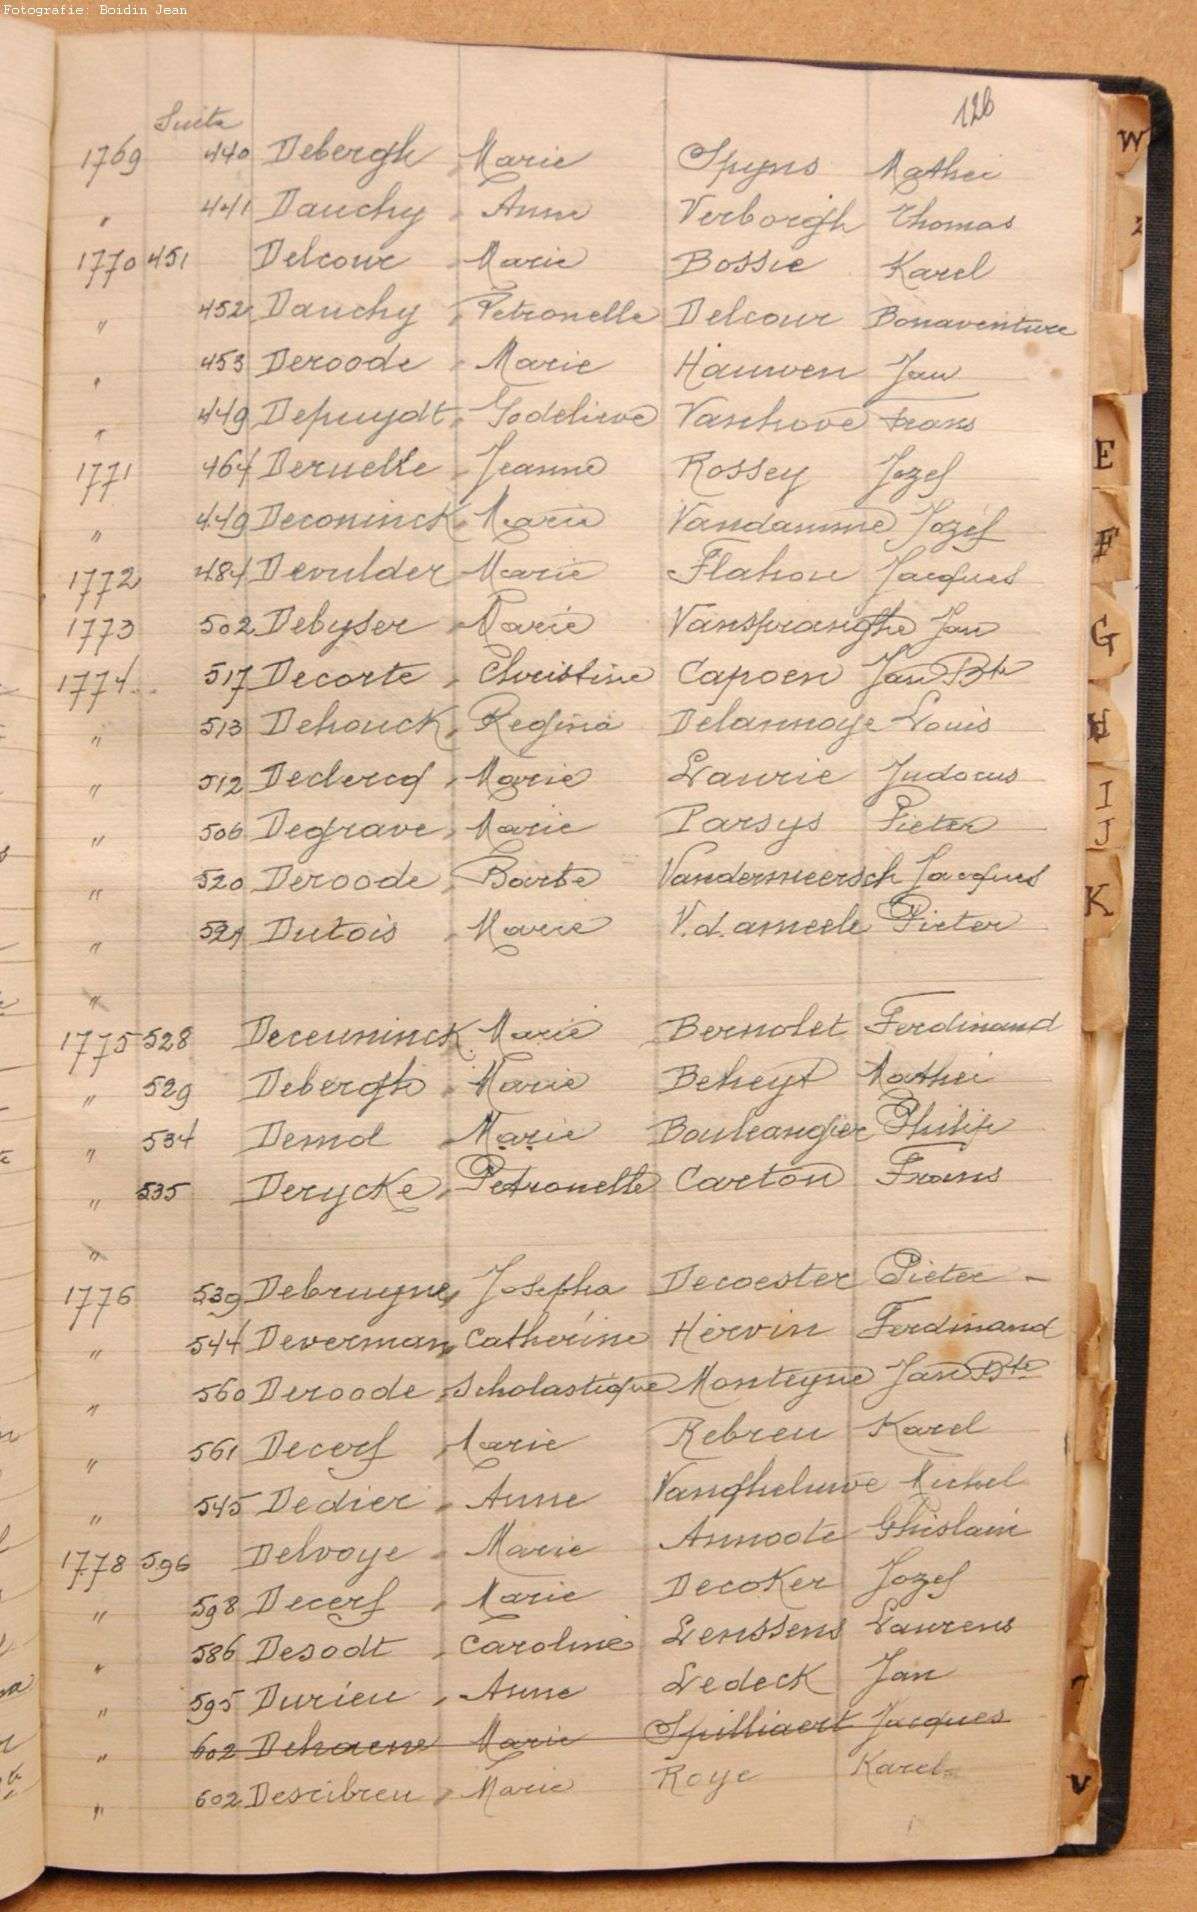 Fotografie: Boidin Jean
126
Suite
1769 440 Debergh Marie Spyns Mathei
" 441 Dauchy Anne Verborgh Thomas
1770 451 Delcour Marie Bossie Karel
" 452 Dauchy Petronelle Delcour Bonaventure
" 453 Deroode Marie Hauwen Jan
" 449 Depuydt Godelieve Vanhove Frans
1771 464 Deruelle Jeanne Rossey Jozef
" 449 Deconinck Marie Vandamme Jozef
1772 484 Devulder Marie Flahou Jacques
1773 502 Debyser Marie Vanspranghe Jan
1774 517 Decorte Christine Capoen Jan Bte
" 513 Dehouck Regina Delannoye Louis
" 512 Declercq Marie Laurie Judocus
" 506 Degrave Marie Parsys Pieter
" 520 Deroode Barbe Vandermeersch Jacques
" 521 Dutois Marie V.d.ameele Pieter
"
1775 528 Deceuninck Marie Bernolet Ferdinand
" 529 Debergh Marie Beheyt Mathei
" 534 Demol Marie Bouleangier Philip
" 535 Derycke Petronelle Carton Frans
"
1776 539 Debruyne Josepha Decoester Pieter -
" 544 Deverman Catherine Hervin Ferdinand
" 560 Deroode Scholastique Monteyne Jan Bte
" 561 Decerf Marie Rebreu Karel
" 545 Dedier Anne Vangheluwe Michel
1778 596 Delvoye Marie Annoote Ghislain
" 598 Decerf Marie Decoker Jozef
" 586 Desodt Caroline Lenssens Laurens
" 595 Durieu Anne Ledeck Jan
" 602 Dehaene Marie Spilliaert Jacques
" 602 Descibreu Marie Roye Karel
W
Z
E
F
G
H
I
J
K
V